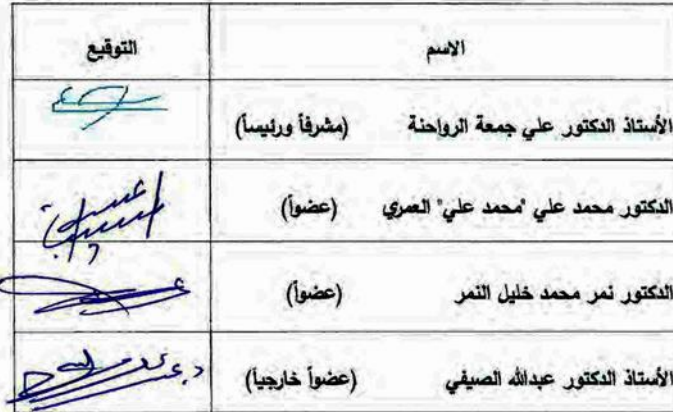 الاسم التوقيع
الأستاذ الدكتور علي جمعة الرواحنة (مشرفاً ورئيساً)
الدكتور محمد علي "محمد علي" العمري (عضواً)
الدكتور نمر محمد خليل النمر (عضواً)
الأستاذ الدكتور عبدالله الصيفي (عضواً خارجياً)